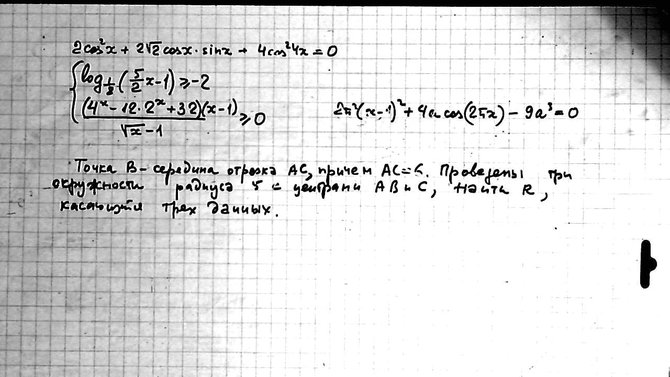 2cos²x + 2√2cosx·sinx + 4cos²4x = 0
{ log_{1/3}(5/2 x-1) ≥ -2
(4^x - 12·2^x + 32)(x-1) / √x - 1 ≥ 0
2π²(x-1)² + 4a cos(2πx) - 9a³ = 0
Точка B - середина отрезка AC, причем AC=6. Проведены три
окружности радиуса 5 с центрами A B и C, Найти R,
касающейся трех данных.